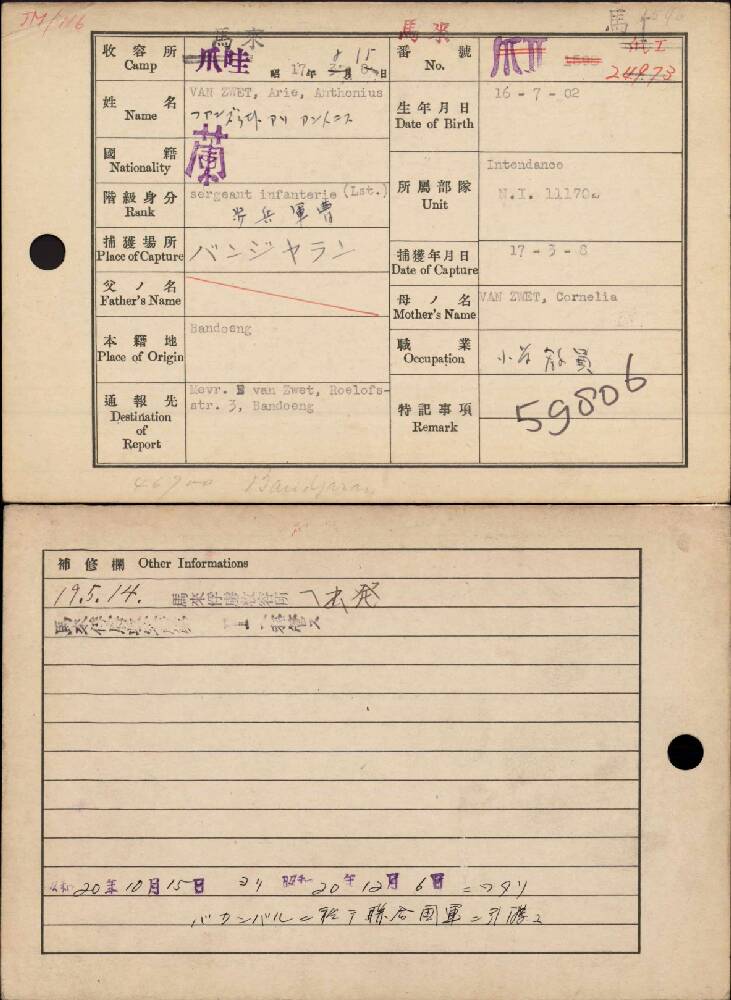 馬來
馬來
收容所
Camp
爪哇
昭17年8月15日
番號
No.
爪II
24973
姓名
Name
VAN ZWET, Arie, Anthonius
生年月日
Date of Birth
16 - 7 - 02
國籍
Nationality
蘭
階級身分
Rank
sergeant infanterie (Lst.)
歩兵軍曹
所屬部隊
Unit
Intendance
N.I. 11170
捕獲場所
Place of Capture
バンジヤラン
捕獲年月日
Date of Capture
17 - 3 - 8
父ノ名
Father's Name
母ノ名
Mother's Name
VAN ZWET, Cornelia
本籍地
Place of Origin
Bandoeng
職業
Occupation
小学教員
通報先
Destination
of
Report
Mevr. E van Zwet, Roelofs-
str. 3, Bandoeng
特記事項
Remark
59806
Bandjaran
補修欄 Other Informations
19.5.14. 馬來俘虜收容所ヘ出発
昭和20年10月15日ヨリ昭和20年12月6日ニワタリ
パカンバルニ於テ聯合國軍ニ引渡ス